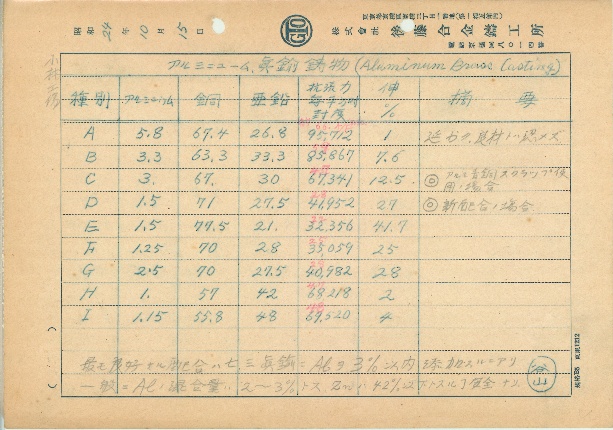 昭和24年10月15日
GTO
株式會社 後藤合金鑄工所
アルミニューム 眞鍮 鋳物 (Aluminum Brass Casting)
種別 アルミニウム 銅 亜鉛 抗張力 每平方吋 封度 伸 % 摘要
A 5.8 67.4 26.8 95,712 1
B 3.3 63.3 33.3 85,867 7.6
C 3. 67. 30 67,341 12.5 ◎ アルミ青銅スクラップ使
用ノ場合
D 1.5 71 27.5 41,952 27 ◎ 新配合ノ場合
E 1.5 77.5 21. 32,356 41.7
F 1.25 70 28 35,059 25
G 2.5 70 27.5 40,982 28
H 1. 57 42 68,218 2
I 1.15 55.8 48 69,520 4
最モ良好ナル配合ハ七三眞鍮ニAlヲ3%以内添加スルニアリ
一般ニAlノ混合量ハ2〜3%トス Znハ42%以下トスル